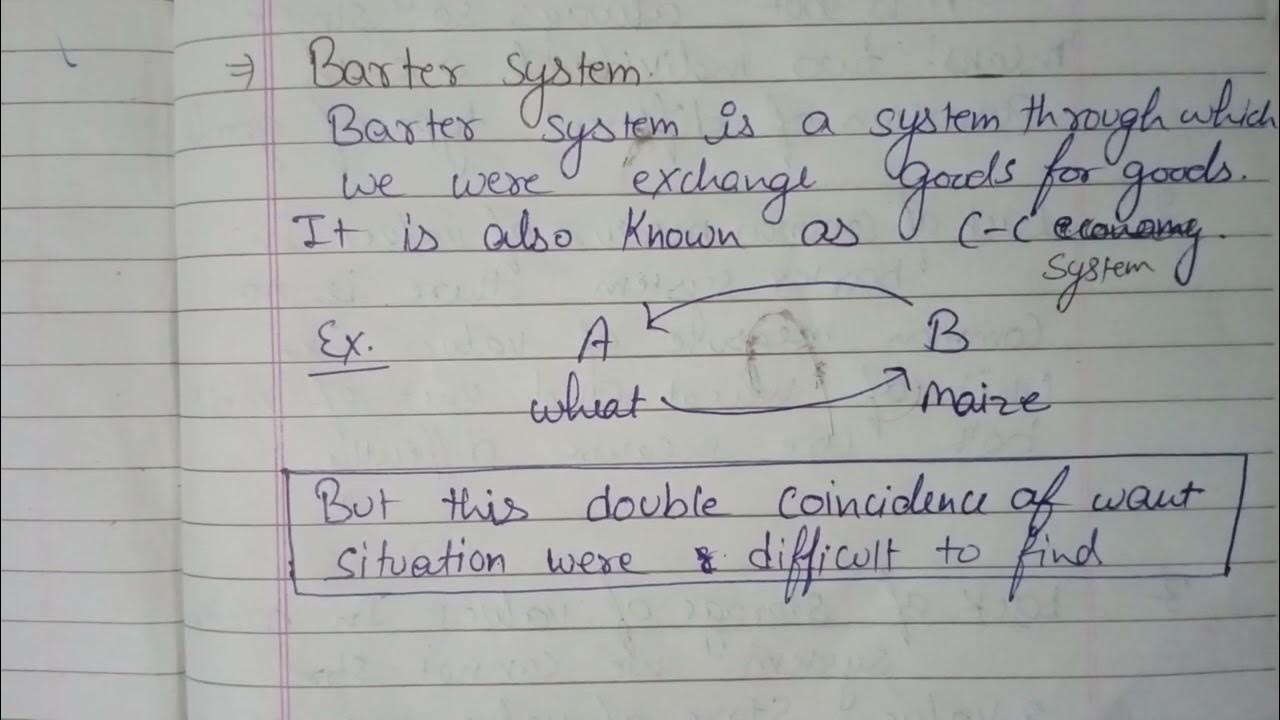 ⇒ Barter system.
Barter system is a system through which
we were exchange goods for goods.
It is also Known as C-C economy.
system
Ex. A B
wheat Maize
But this double coincidence of want
situation were difficult to find